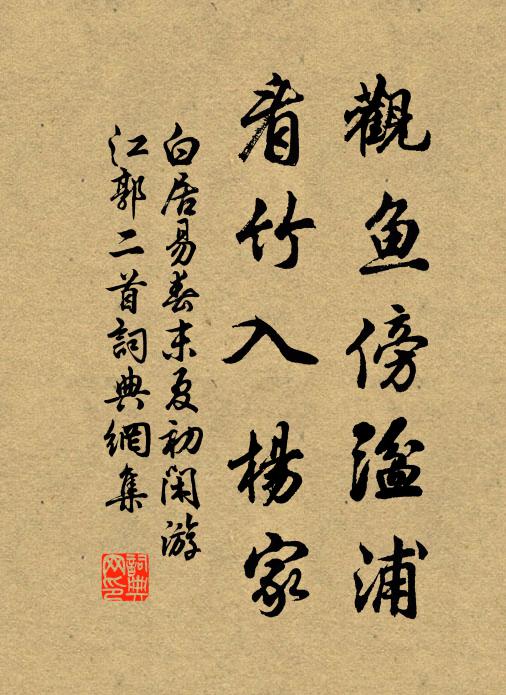 觀魚傍湓浦
看竹入楊家
白居易春末夏初閑游
江郭二首詞典網集
詞典
网印